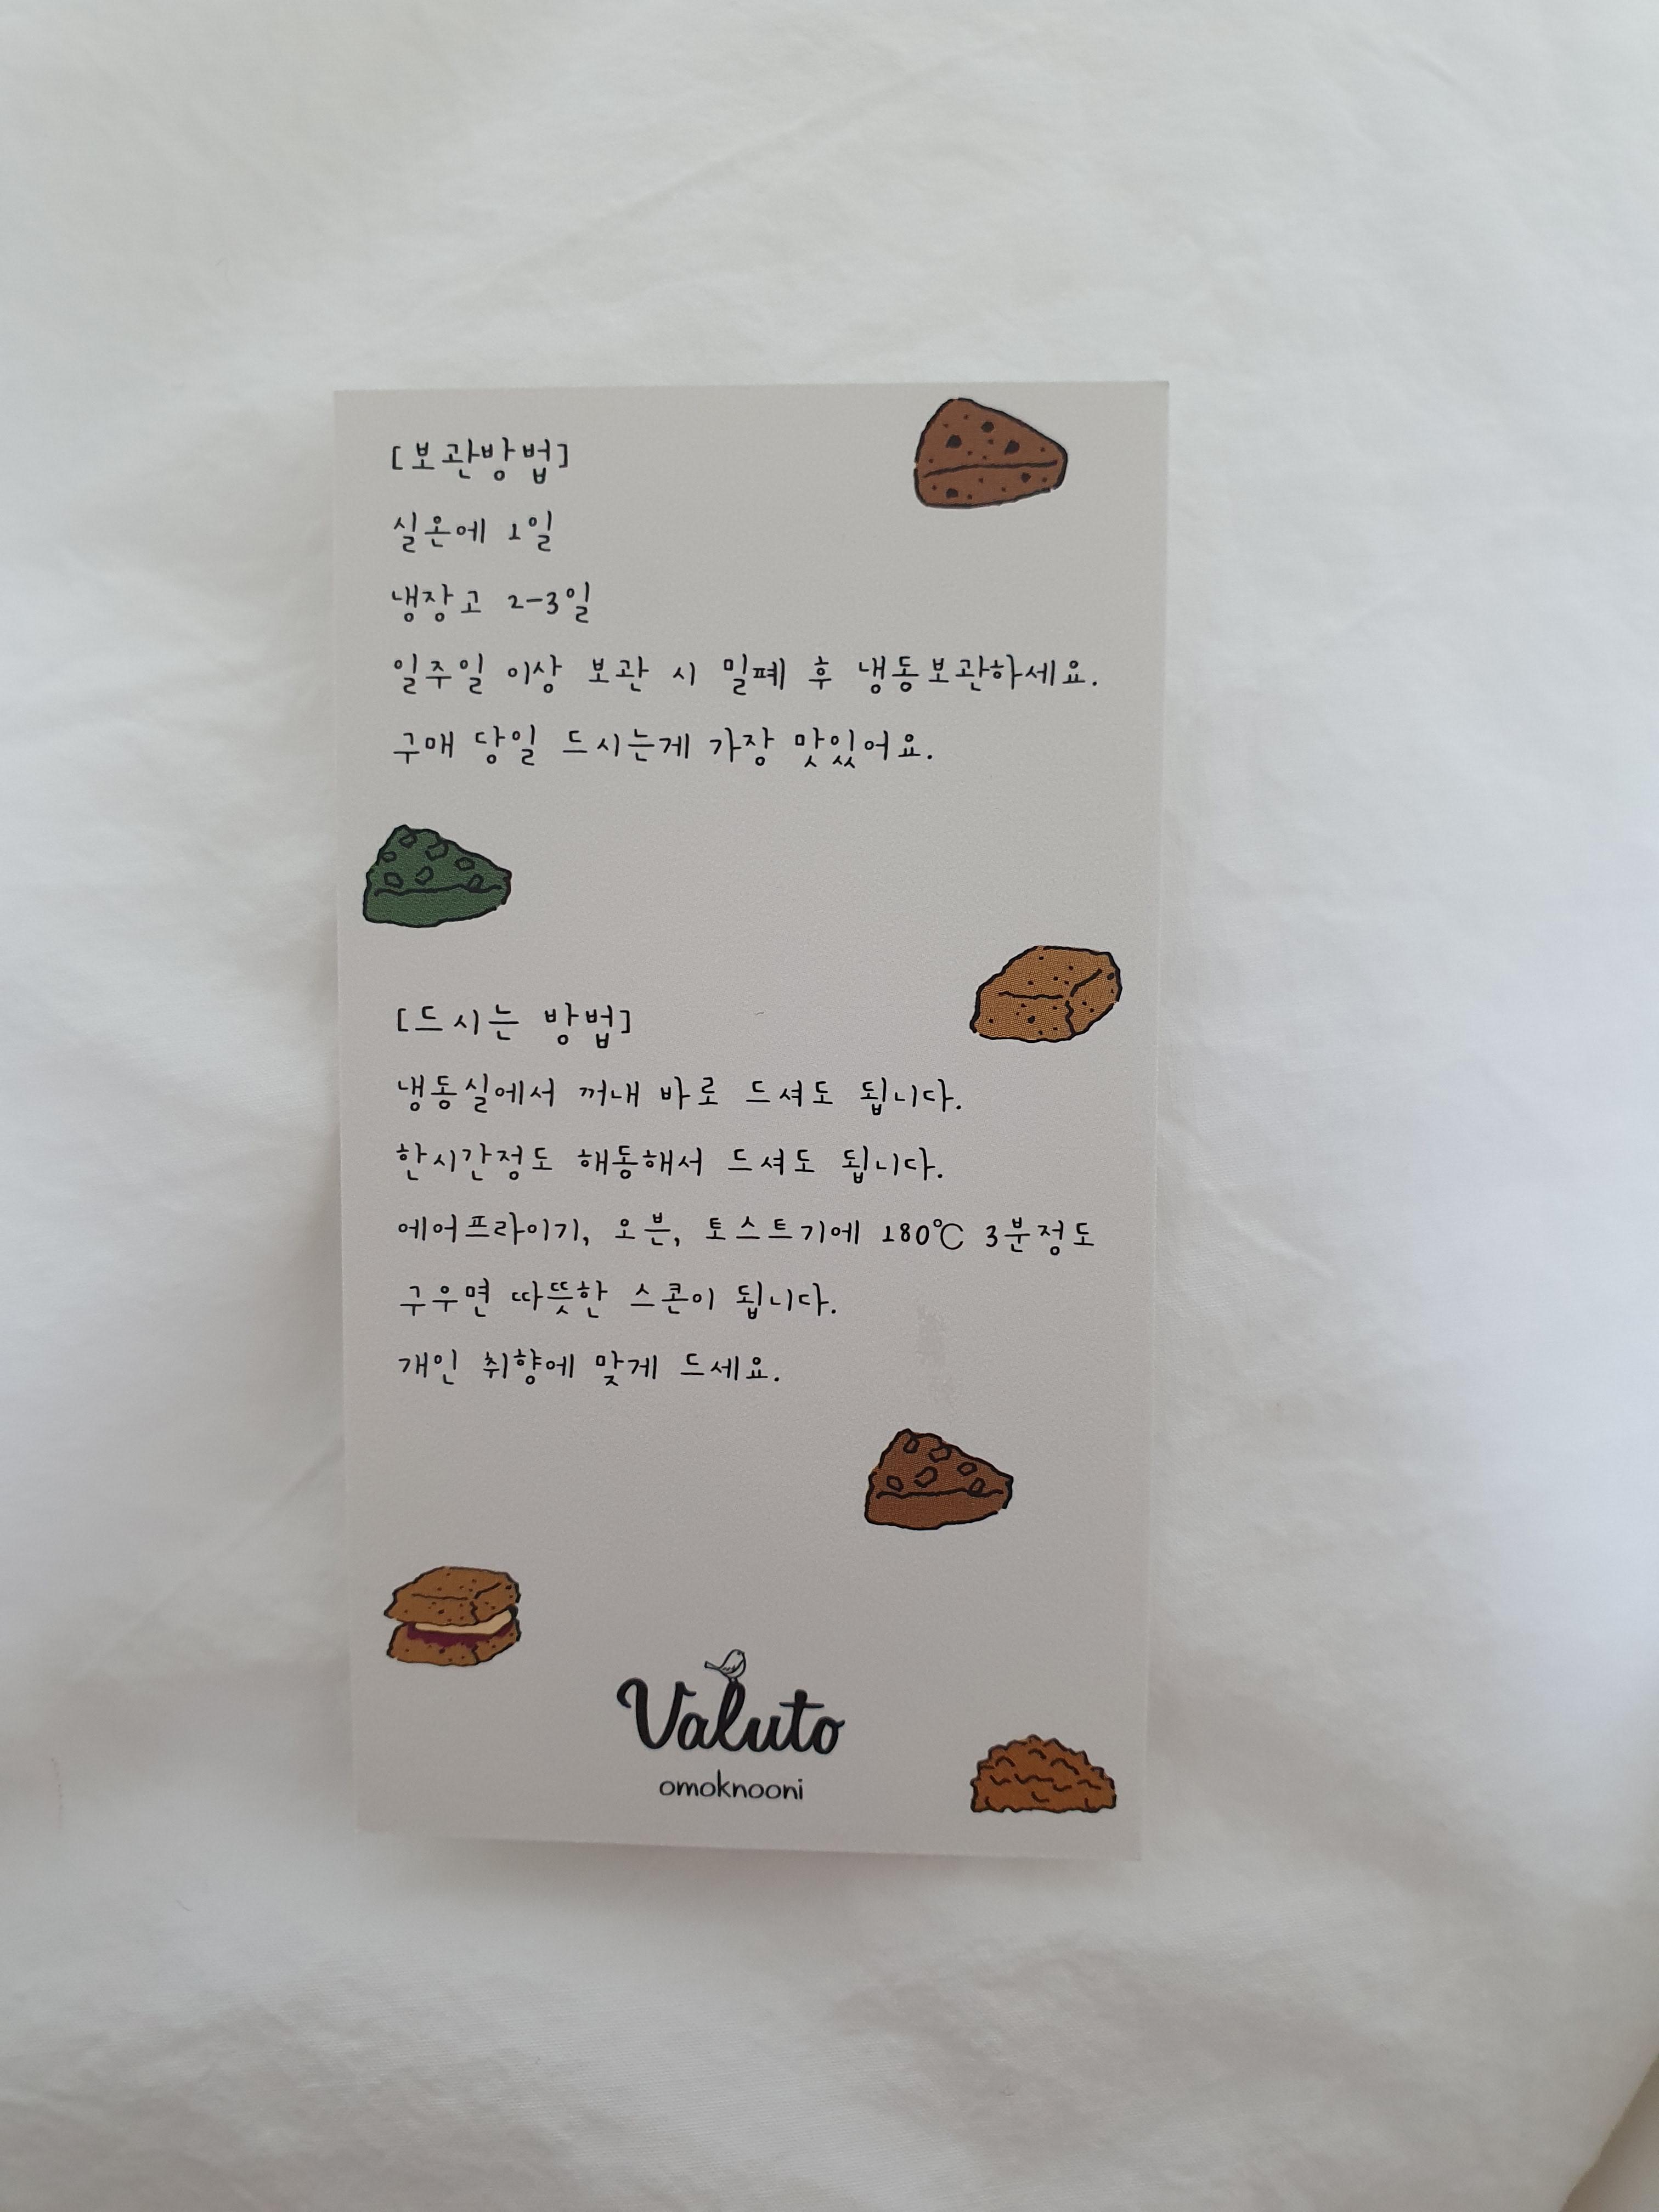 [보관방법]
실온에 1일
냉장고 2-3일
일주일 이상 보관 시 밀폐 후 냉동보관하세요.
구매 당일 드시는게 가장 맛있어요.
[드시는 방법]
냉동실에서 꺼내 바로 드셔도 됩니다.
한시간정도 해동해서 드셔도 됩니다.
에어프라이기, 오븐, 토스트기에 180℃ 3분정도
구우면 따뜻한 스콘이 됩니다.
개인 취향에 맞게 드세요.
Valuto
omoknooni